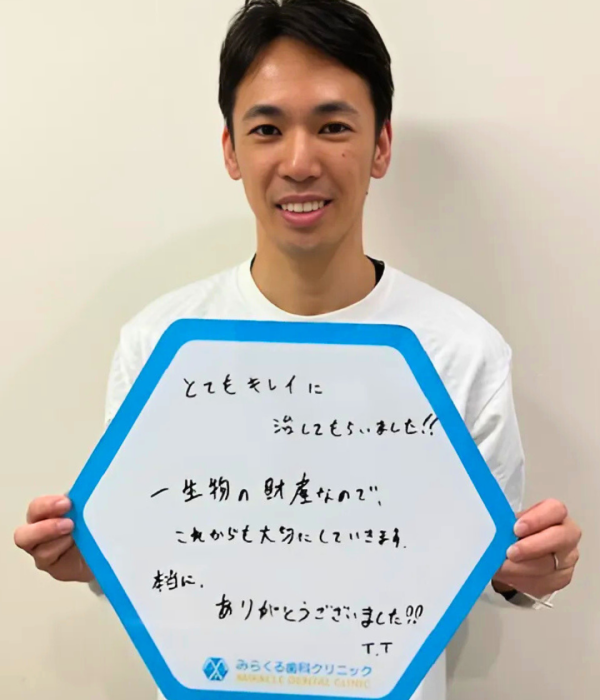 とてもキレイに
治してもらいました!!
一生物の財産なので、
これからも大切にしていきます.
本当に.
ありがとうございました!!
T.T
みらくる歯科クリニック
MIRACLE DENTAL CLINIC